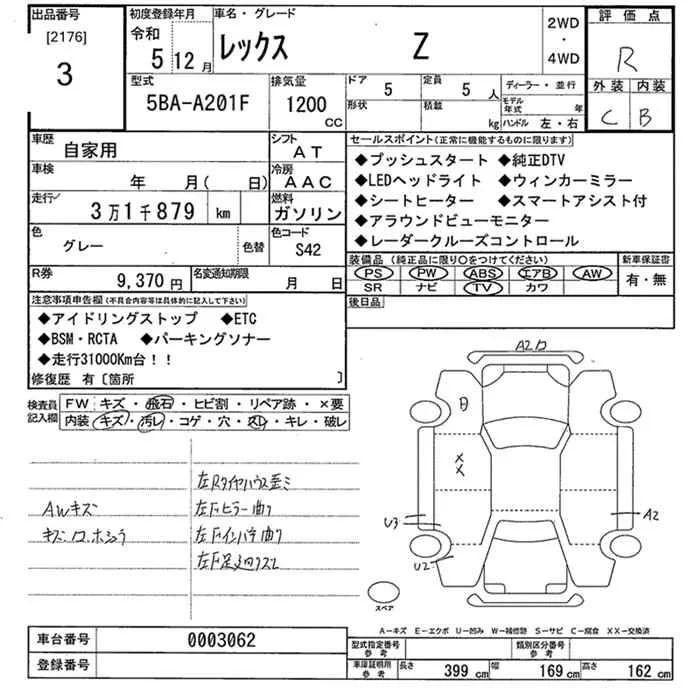 出品番号
[2176]
3
初度登録年月
令和
5 12月
車名・グレード
レックス Z
2WD
・
4WD
評価点
R
外装 内装
C B
型式
5BA-A201F
排気量
1200
cc
ドア 5
形状
定員 5 人
積載 kg
ディーラー・並行
モデル年式 年
ハンドル 左・右
車歴
自家用
シフト
AT
車検
年 月( 日)
冷房
AAC
走行
3万1千879 km
燃料
ガソリン
色
グレー
色替
色コード
S42
R券
9,370円
名変通知期限
月 日
セールスポイント(正常に機能するものに限ります)
◆プッシュスタート ◆純正DTV
◆LEDヘッドライト ◆ウィンカーミラー
◆シートヒーター ◆スマートアシスト付
◆アラウンドビューモニター
◆レーダークルーズコントロール
装備品(純正品に限り○をつけてください)
PS PW ABS エアB AW
SR ナビ TV カワ
新車保証書
有・無
後日品
注意事項申告欄(不具合内容等は具体的に記入して下さい)
◆アイドリングストップ ◆ETC
◆BSM・RCTA ◆パーキングソナー
◆走行31000Km台!!
修復歴 有〔箇所 〕
検査員
記入欄
FW キズ・飛石・ヒビ割・リペア跡・×要
内装 キズ・汚レ・コゲ・穴・スレ・キレ・破レ
左Rタイヤハウス歪ミ
AWキズ
左Fピラー曲り
左Fインパネ曲り
A2
X
X
U3
A2
U2
スペア
A-キズ E-エクボ U-凹み W-補修跡 S-サビ C-腐食 XX-交換済
車台番号 0003062
登録番号
型式指定番号
参考
類別区分番号
参考
車庫証明用
参考
長さ 399 cm 幅 169 cm 高さ 162 cm